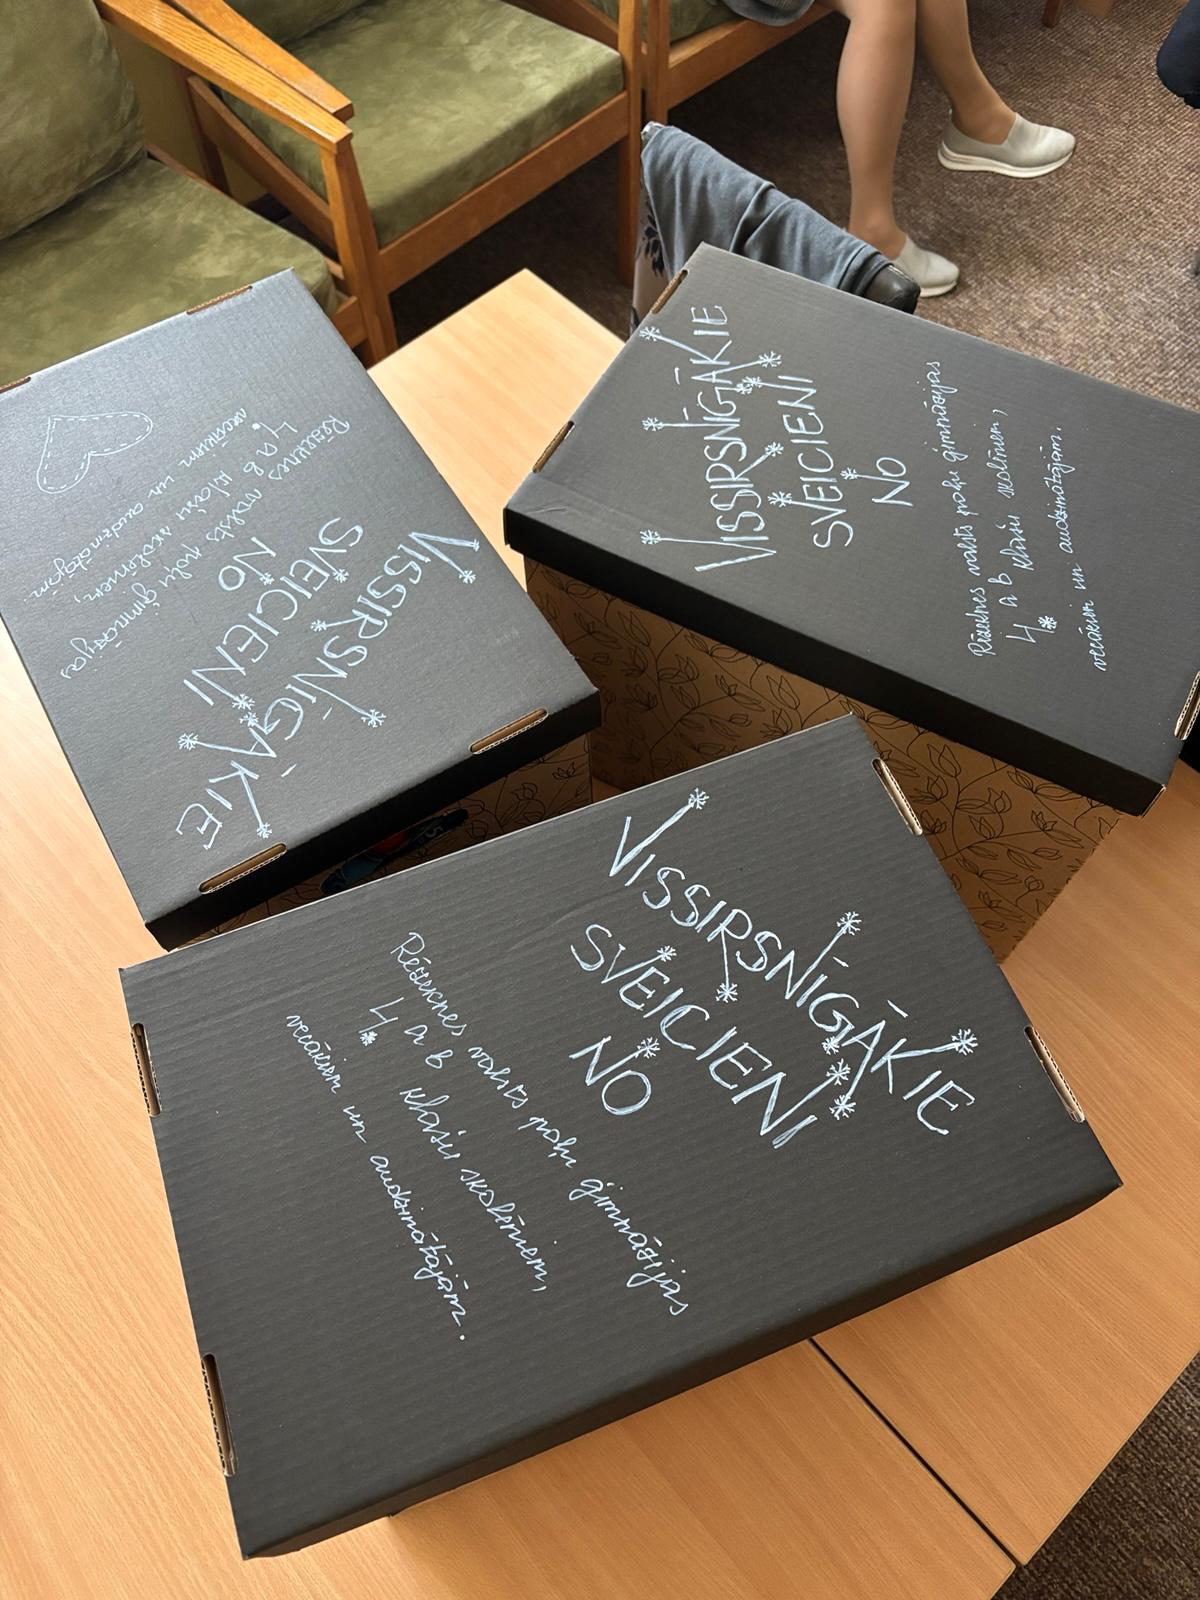 VISSIRSNĪGĀKIE
SVEICIENI
NO
Rēzeknes valsts poļu ģimnāzijas
4. a b klašu skolēniem,
vecākiem un audzinātājām.
VISSIRSNĪGĀKIE
SVEICIENI
NO
Rēzeknes valsts poļu ģimnāzijas
4. a b klašu skolēniem,
vecākiem un audzinātājām.
VISSIRSNĪGĀKIE
SVEICIENI
NO
Rēzeknes valsts poļu ģimnāzijas
4. a b klašu skolēniem,
vecākiem un audzinātājām.